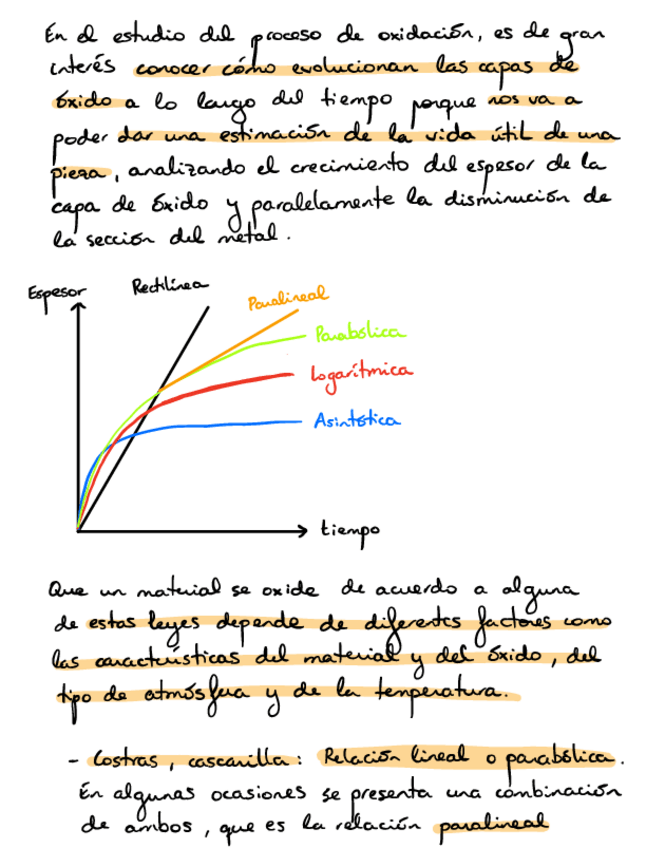 En el estudio del proceso de oxidación, es de gran
interés conocer cómo evolucionan las capas de
óxido a lo largo del tiempo porque nos va a
poder dar una estimación de la vida útil de una
pieza, analizando el crecimiento del espesor de la
capa de óxido y paralelamente la disminución de
la sección del metal.
Espesor
Rectilínea
Paralineal
Parabólica
Logarítmica
Asintótica
tiempo
Que un material se oxide de acuerdo a alguna
de estas leyes depende de diferentes factores como
las características del material y del óxido, del
tipo de atmósfera y de la temperatura.
- Costras, cascarilla: Relación lineal o parabólica.
En algunas ocasiones se presenta una combinación
de ambos, que es la relación paralineal